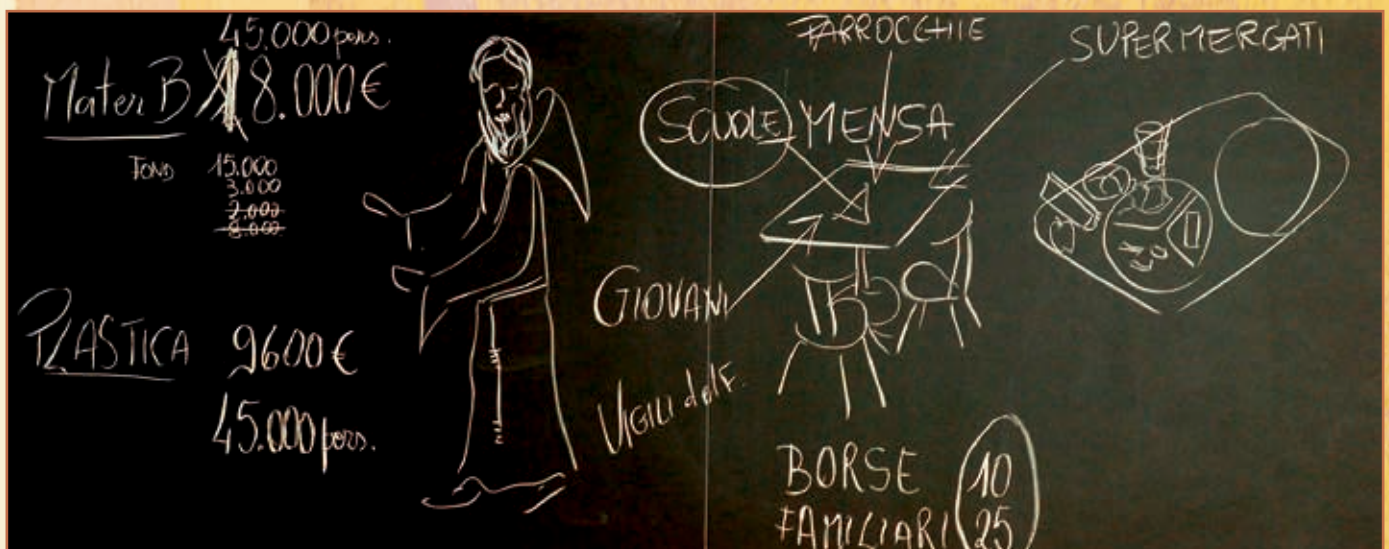 45.000 pers.
Mater B 18.000 €
FOND 15.000
3.000
2.000
8.000
PLASTICA 9600 €
45.000 pers.
PARROCCHIE
SUPERMERCATI
SCUOLE MENSA
GIOVANI
VIGILI del F.
BORSE 10
FAMILIARI 25